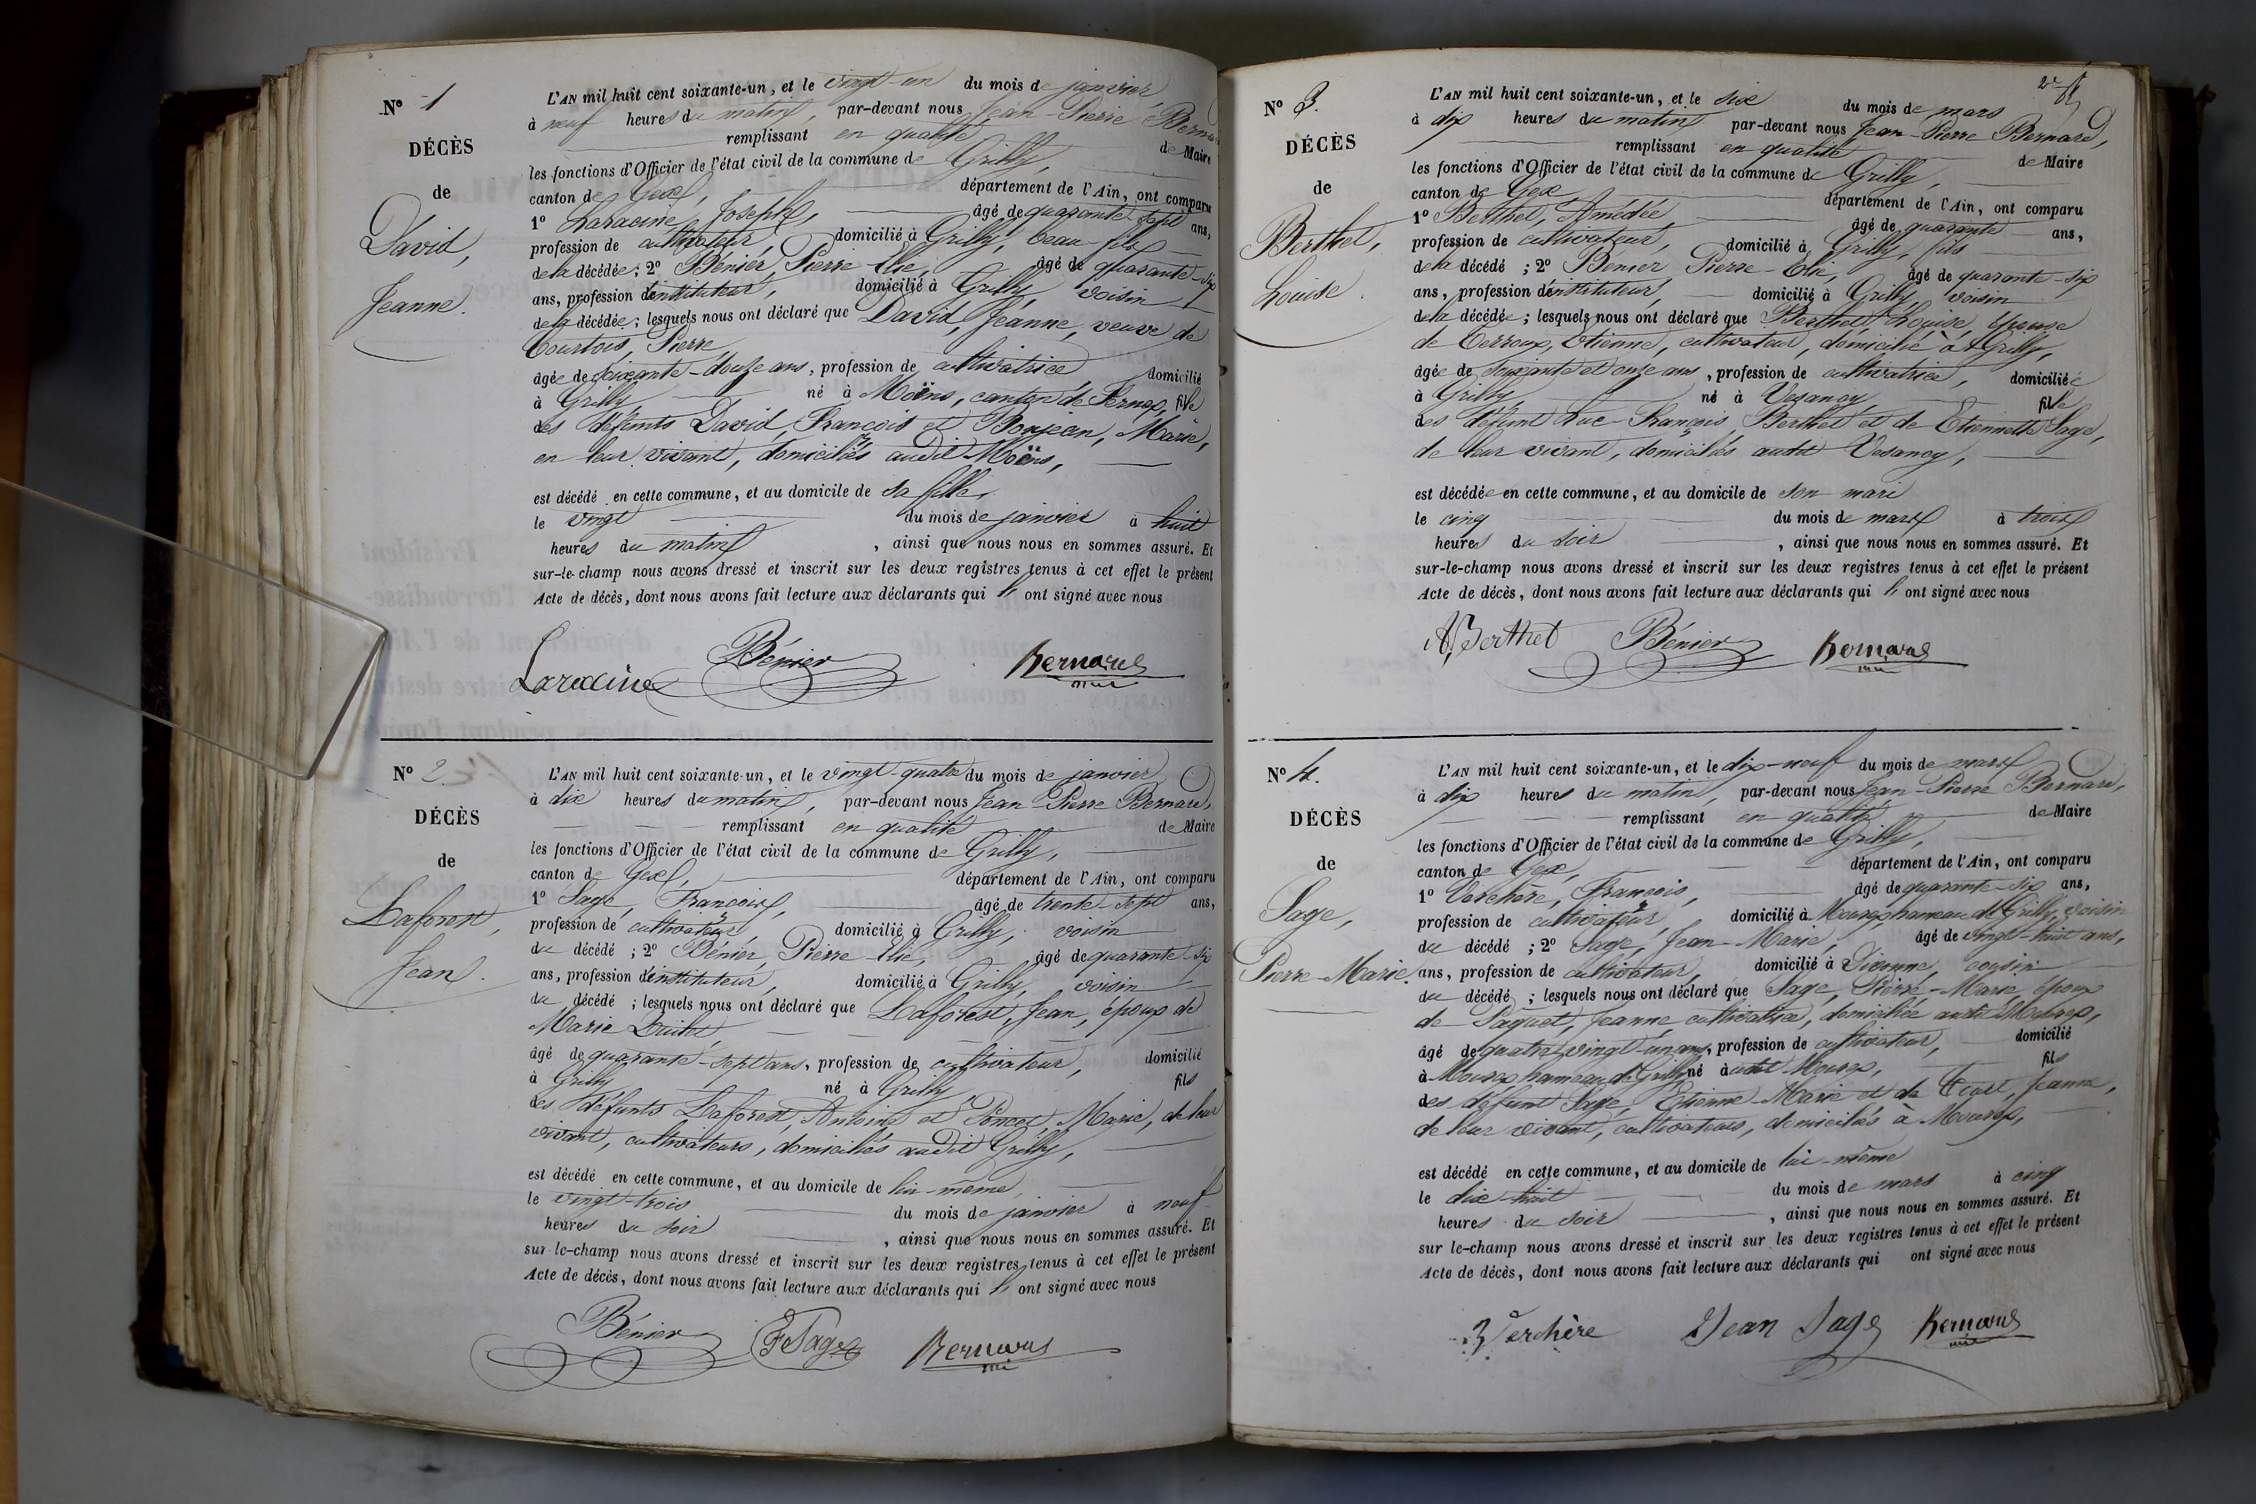 N° 1
DÉCÈS
de
David,
Jeanne.
L'AN mil huit cent soixante-un, et le vingt-un du mois de janvier,
à neuf heures du matin, par-devant nous Jean-Pierre Berna
remplissant en qualité de Maire
les fonctions d'Officier de l'état civil de la commune de Grilly,
canton de Gex, département de l'Ain, ont comparu
1° Laracine, Joseph, âgé de quarante-sept ans,
profession de cultivateur, domicilié à Grilly, beau-fils
de la décédée; 2° Bénier, Pierre-Elie, âgé de quarante-six
ans, profession d'instituteur, domicilié à Grilly, voisin
de la décédée; lesquels nous ont déclaré que David, Jeanne, veuve de
Courtois, Pierre
âgée de soixante-douze ans, profession de cultivatrice domicilié
à Grilly né à Moëns, canton de Fernex, fille
des défunts David, François et Bonjean, Marie,
en leur vivant, domiciliés audit Moëns,
est décédé en cette commune, et au domicile de sa fille,
le vingt du mois de janvier à huit
heures du matin, ainsi que nous nous en sommes assuré. Et
sur-le-champ nous avons dressé et inscrit sur les deux registres tenus à cet effet le présent
Acte de décès, dont nous avons fait lecture aux déclarants qui ont signé avec nous
Laracine Bénier Bernard
N° 2
DÉCÈS
de
Laforest,
Jean.
L'AN mil huit cent soixante-un, et le vingt-quatre du mois de janvier
à dix heures du matin, par-devant nous Jean-Pierre Bernard,
remplissant en qualité de Maire
les fonctions d'Officier de l'état civil de la commune de Grilly,
canton de Gex, département de l'Ain, ont comparu
1° Sage, François, âgé de trente-sept ans,
profession de cultivateur, domicilié à Grilly, voisin
du décédé; 2° Bénier, Pierre-Elie, âgé de quarante-six
ans, profession d'instituteur, domicilié à Grilly, voisin
du décédé; lesquels nous ont déclaré que Laforest, Jean, époux de
Marie
âgé de quarante-sept ans, profession de cultivateur, domicilié
à Grilly né à Grilly, fils
des défunts Laforest, Antoine et Poncet, Marie, de leur
vivant, cultivateurs, domiciliés audit Grilly,
est décédé en cette commune, et au domicile de lui-même,
le vingt-trois du mois de janvier à neuf
heures du soir, ainsi que nous nous en sommes assuré. Et
sur-le-champ nous avons dressé et inscrit sur les deux registres tenus à cet effet le présent
Acte de décès, dont nous avons fait lecture aux déclarants qui ont signé avec nous
Bénier F Sage Bernard
N° 3.
DÉCÈS
de
Berthet,
Louise.
L'AN mil huit cent soixante-un, et le six du mois de mars
à dix heures du matin par-devant nous Jean-Pierre Bernard,
remplissant en qualité de Maire
les fonctions d'Officier de l'état civil de la commune de Grilly,
canton de Gex, département de l'Ain, ont comparu
1° Berthet, Amédée, âgé de quarante ans,
profession de cultivateur, domicilié à Grilly, fils
de la décédé; 2° Benier Pierre-Elie, âgé de quarante-six
ans, profession d'instituteur, domicilié à Grilly, voisin
de la décédée; lesquels nous ont déclaré que Berthet Louise, épouse
de Terroux, Etienne, cultivateur, domicilié à Grilly,
âgée de soixante et onze ans, profession de cultivatrice, domiciliée
à Grilly, né à Vesancy, fille
des défunt Luc-François Berthet et de Etiennette Sage,
de leur vivant, domiciliés audit Vesancy,
est décédée en cette commune, et au domicile de son mari
le cinq du mois de mars à trois
heures du soir, ainsi que nous nous en sommes assuré. Et
sur-le-champ nous avons dressé et inscrit sur les deux registres tenus à cet effet le présent
Acte de décès, dont nous avons fait lecture aux déclarants qui ont signé avec nous
A. Berthet Bénier Bernard
N° 4.
DÉCÈS
de
Sage,
Pierre-Marie.
L'AN mil huit cent soixante-un, et le dix-neuf du mois de mars
à dix heures du matin, par-devant nous Jean-Pierre Bernard,
remplissant en qualité de Maire
les fonctions d'Officier de l'état civil de la commune de Grilly,
canton de Gex, département de l'Ain, ont comparu
1° Verchère, François, âgé de quarante-six ans,
profession de cultivateur, domicilié à Mourex hameau de Grilly, voisin
du décédé; 2° Sage, Jean-Marie, âgé de vingt-huit ans,
ans, profession de cultivateur, domicilié à Divonne, cousin
du décédé; lesquels nous ont déclaré que Sage, Pierre-Marie époux
de Paquet, Jeanne, cultivatrice, domiciliée audit Mourex,
âgé de quatre-vingt-un ans, profession de cultivateur, domicilié
à Mourex hameau de Grilly né audit Mourex, fils
des défunt Sage, Etienne Marie et de Jeanne,
de leur vivant, cultivateurs, domiciliés à Mourex,
est décédé en cette commune, et au domicile de lui-même
le dix-huit du mois de mars à cinq
heures du soir, ainsi que nous nous en sommes assuré. Et
sur le-champ nous avons dressé et inscrit sur les deux registres tenus à cet effet le présent
Acte de décès, dont nous avons fait lecture aux déclarants qui ont signé avec nous
Verchère Jean Sage Bernard